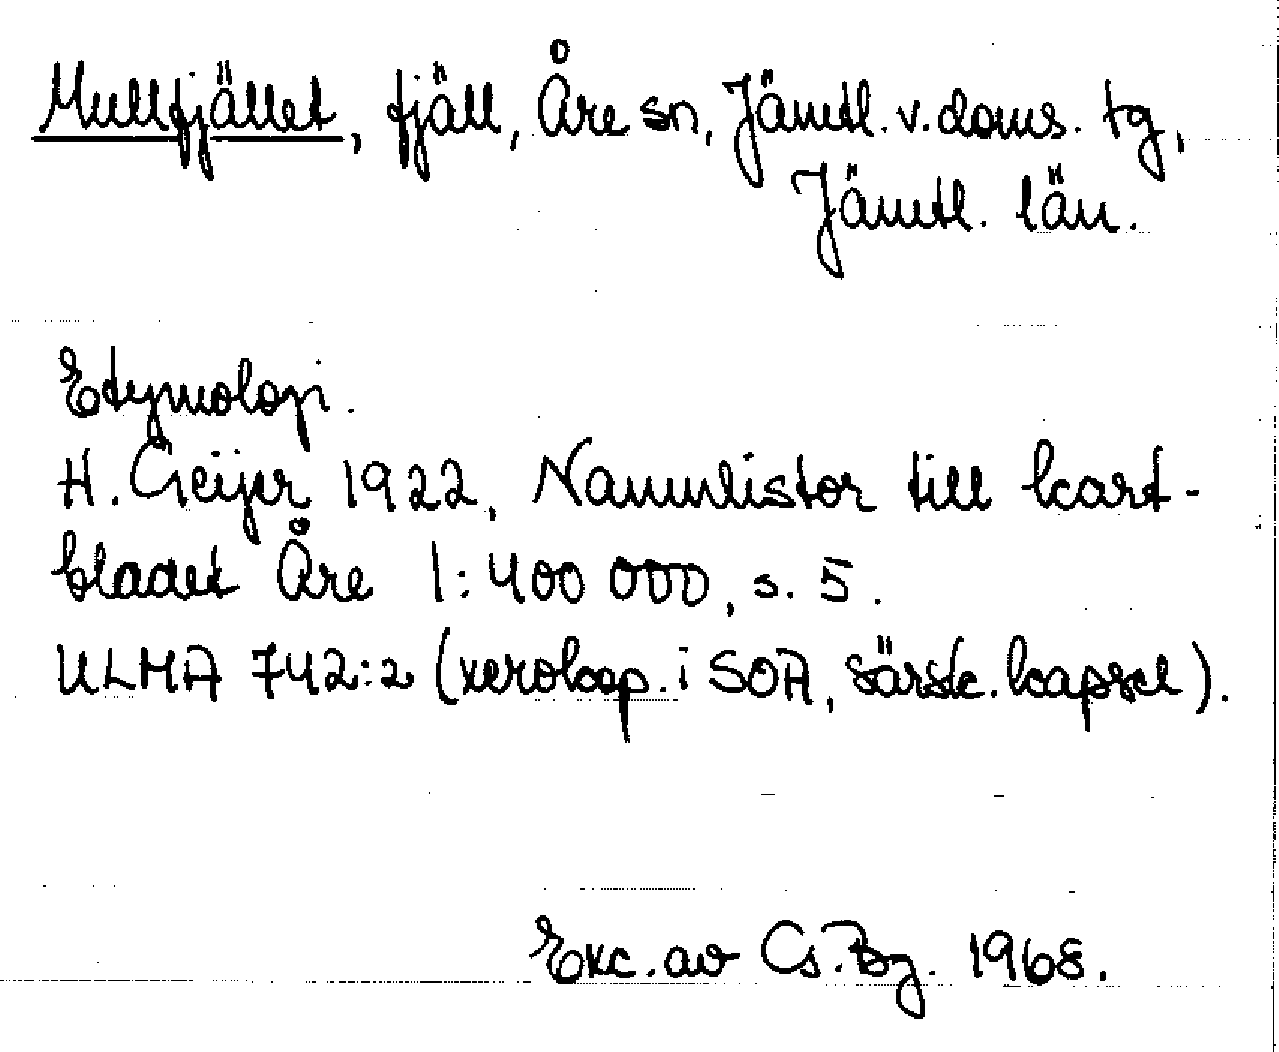 Mullfjället, fjäll, Åre sn, Jämtl. v. doms. tg,
Jämtl. län.
Etymologi.
H. Geijer 1922, Namnlistor till kart-
bladet Åre 1:400 000, s. 5.
ULMA 742:2 (xerokop. i SOA, särsk. kapsel).
Exc. av G. Bg. 1968.